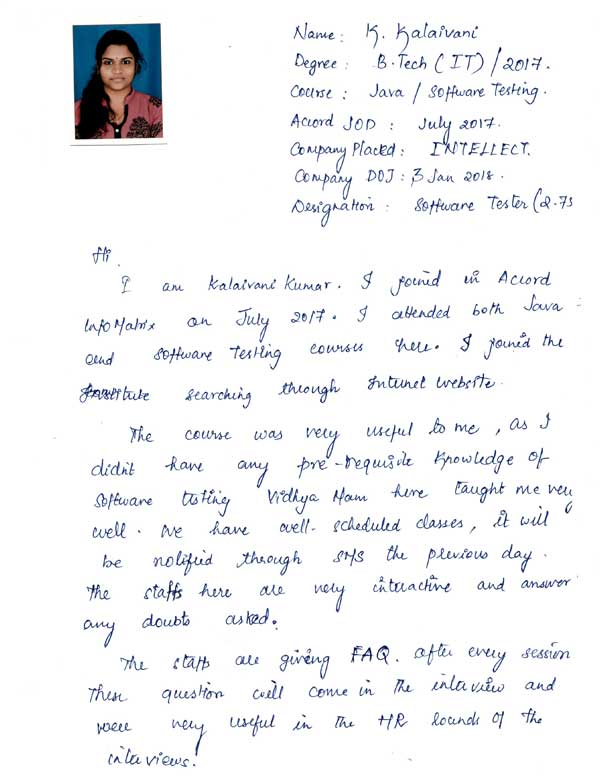 Name : K. Kalaivani
Degree : B.Tech (IT) / 2017.
Course : Java / Software Testing.
Accord JOD : July 2017.
Company Placed : INTELLECT.
Company DOJ : 3 Jan 2018.
Designation : Software Tester (2.75
Hi.
I am Kalaivani Kumar. I joined in Accord
InfoMatrix on July 2017. I attended both Java
and Software Testing courses here. I joined the
Institute searching through Internet website.
The course was very useful to me, as I
didn't have any pre-requisite knowledge of
Software testing Vidhya Mam here taught me very
well. We have well-scheduled classes, it will
be notified through SMS the previous day.
The staffs here are very interactive and answer
any doubts asked.
The staff are giving FAQ. after every session
These question will come in the interview and
were very useful in the HR rounds of the
interviews.